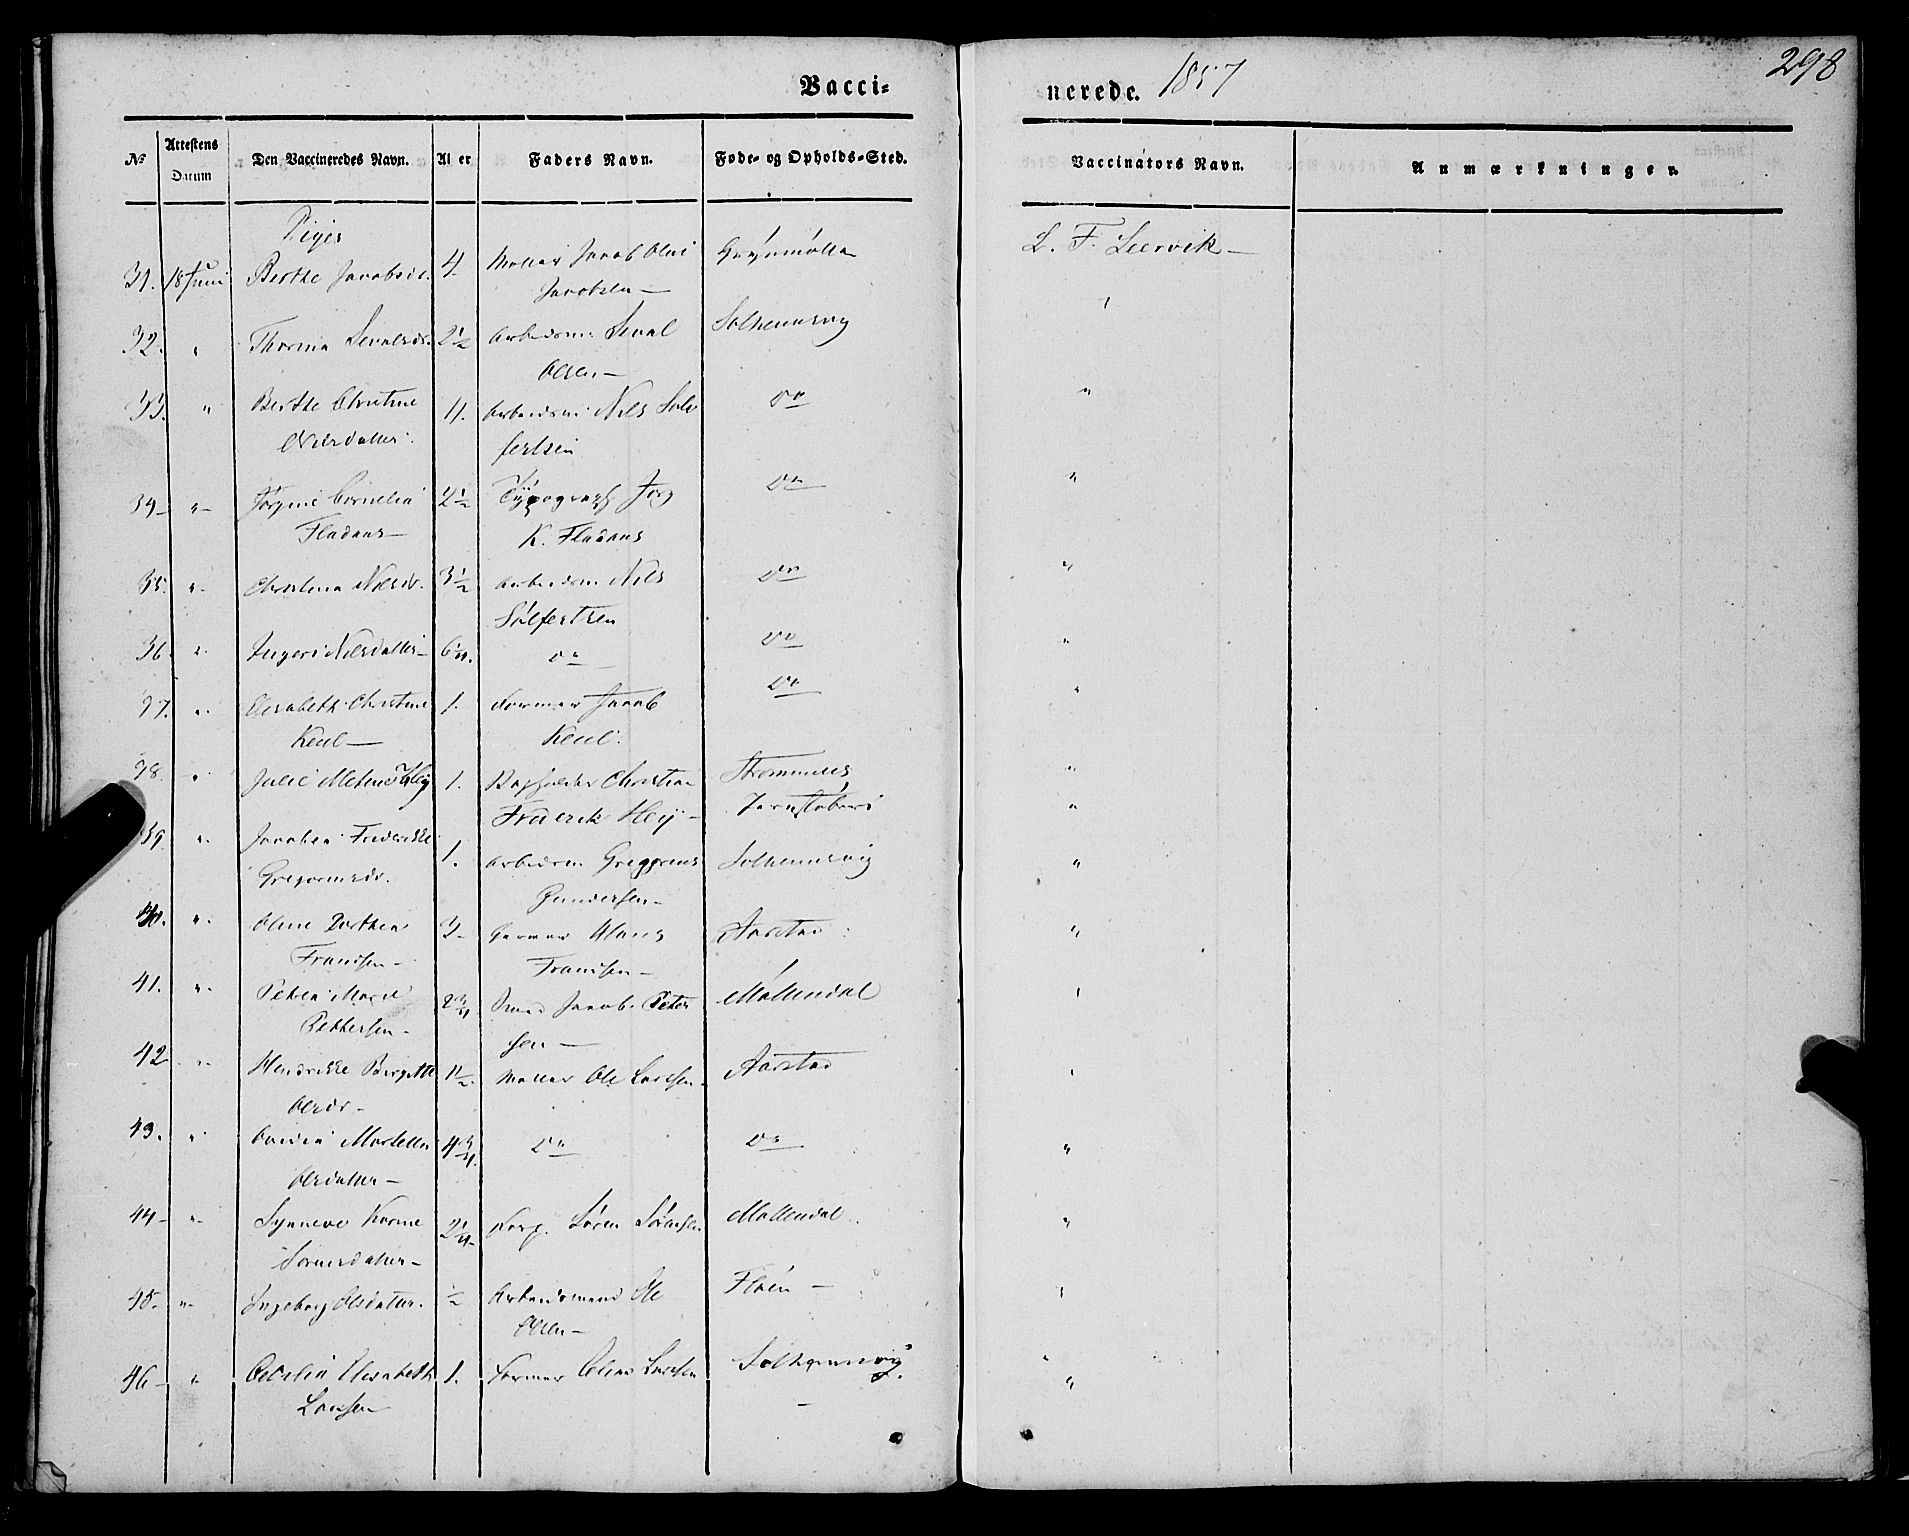 Vacci-
nerede. 1857
298
No
Attestens Datum
Den Vaccineredes Navn.
Al er
Faders Navn.
Føde- og Opholds-Sted.
Vaccinators Navn.
Anmærkninger.
Piger
31. 18 Juni Berthe Jacobsdr. 4. Møller Jacob Jacobsen — L. F. Leervik —
32. " 2½ Arbeidsm. Sival Olsen — Solheimsvig
33. " Berthe Christine Nilsdatter. 4. Arbeidsm. Nils Solfertsen Do "
34 — " — Jørgine Cornelia Fladaas — 2½ Typograph Jørg K. Fladaas Do "
35. " Christina Nilsdr. 3½ Arbeidsm Nils Solfertsen Do "
36. " Ingeri Nilsdatter — 6¼. Do Do "
37. " Elisabeth Christine Keul — 1. Former Jacob Keul. Do "
38. " Julie Metine Heij 1. Christian Frederik Heij — Strømmens Jernstøberi "
39. " Jacobea Frederikke Gregoriusdr. 1. Arbeidsm Greggorius Gundersen — Solheimsvig "
40. " Oline Dorthea Frandsen — 3 — Garver Hans Frandsen — Aarstad "
41. " Petrea Marie Pettersen — 2¾ Jacob Petersen — Møllendal
42 " Hendrikke Birgitte Olsdr — 1½. Møller Ole Larsen — Aarstad
43. " Olsdatter — 4¾. Do Do "
44 — " Synneve Karine Sørensdatter — 2¼ Søren Sørensen Møllendal "
45 — " — Ingeborg Olsdatter. ½ Arbeidsmand Ole Olsen — Fløen —
46 — " Elisabeth Larsen 1. Former Larsen Solheimsvig. "